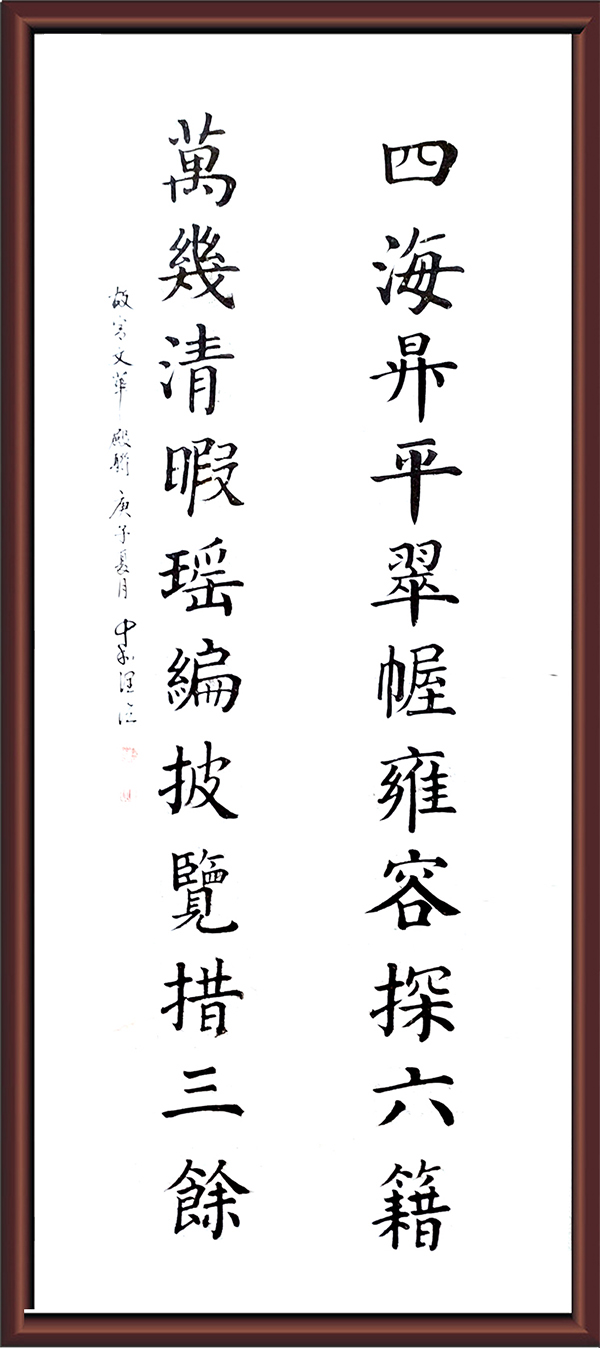 四海昇平翠幄雍容探六籍
萬幾清暇瑶編披覽措三餘
故宫文華殿聯 庚子夏月